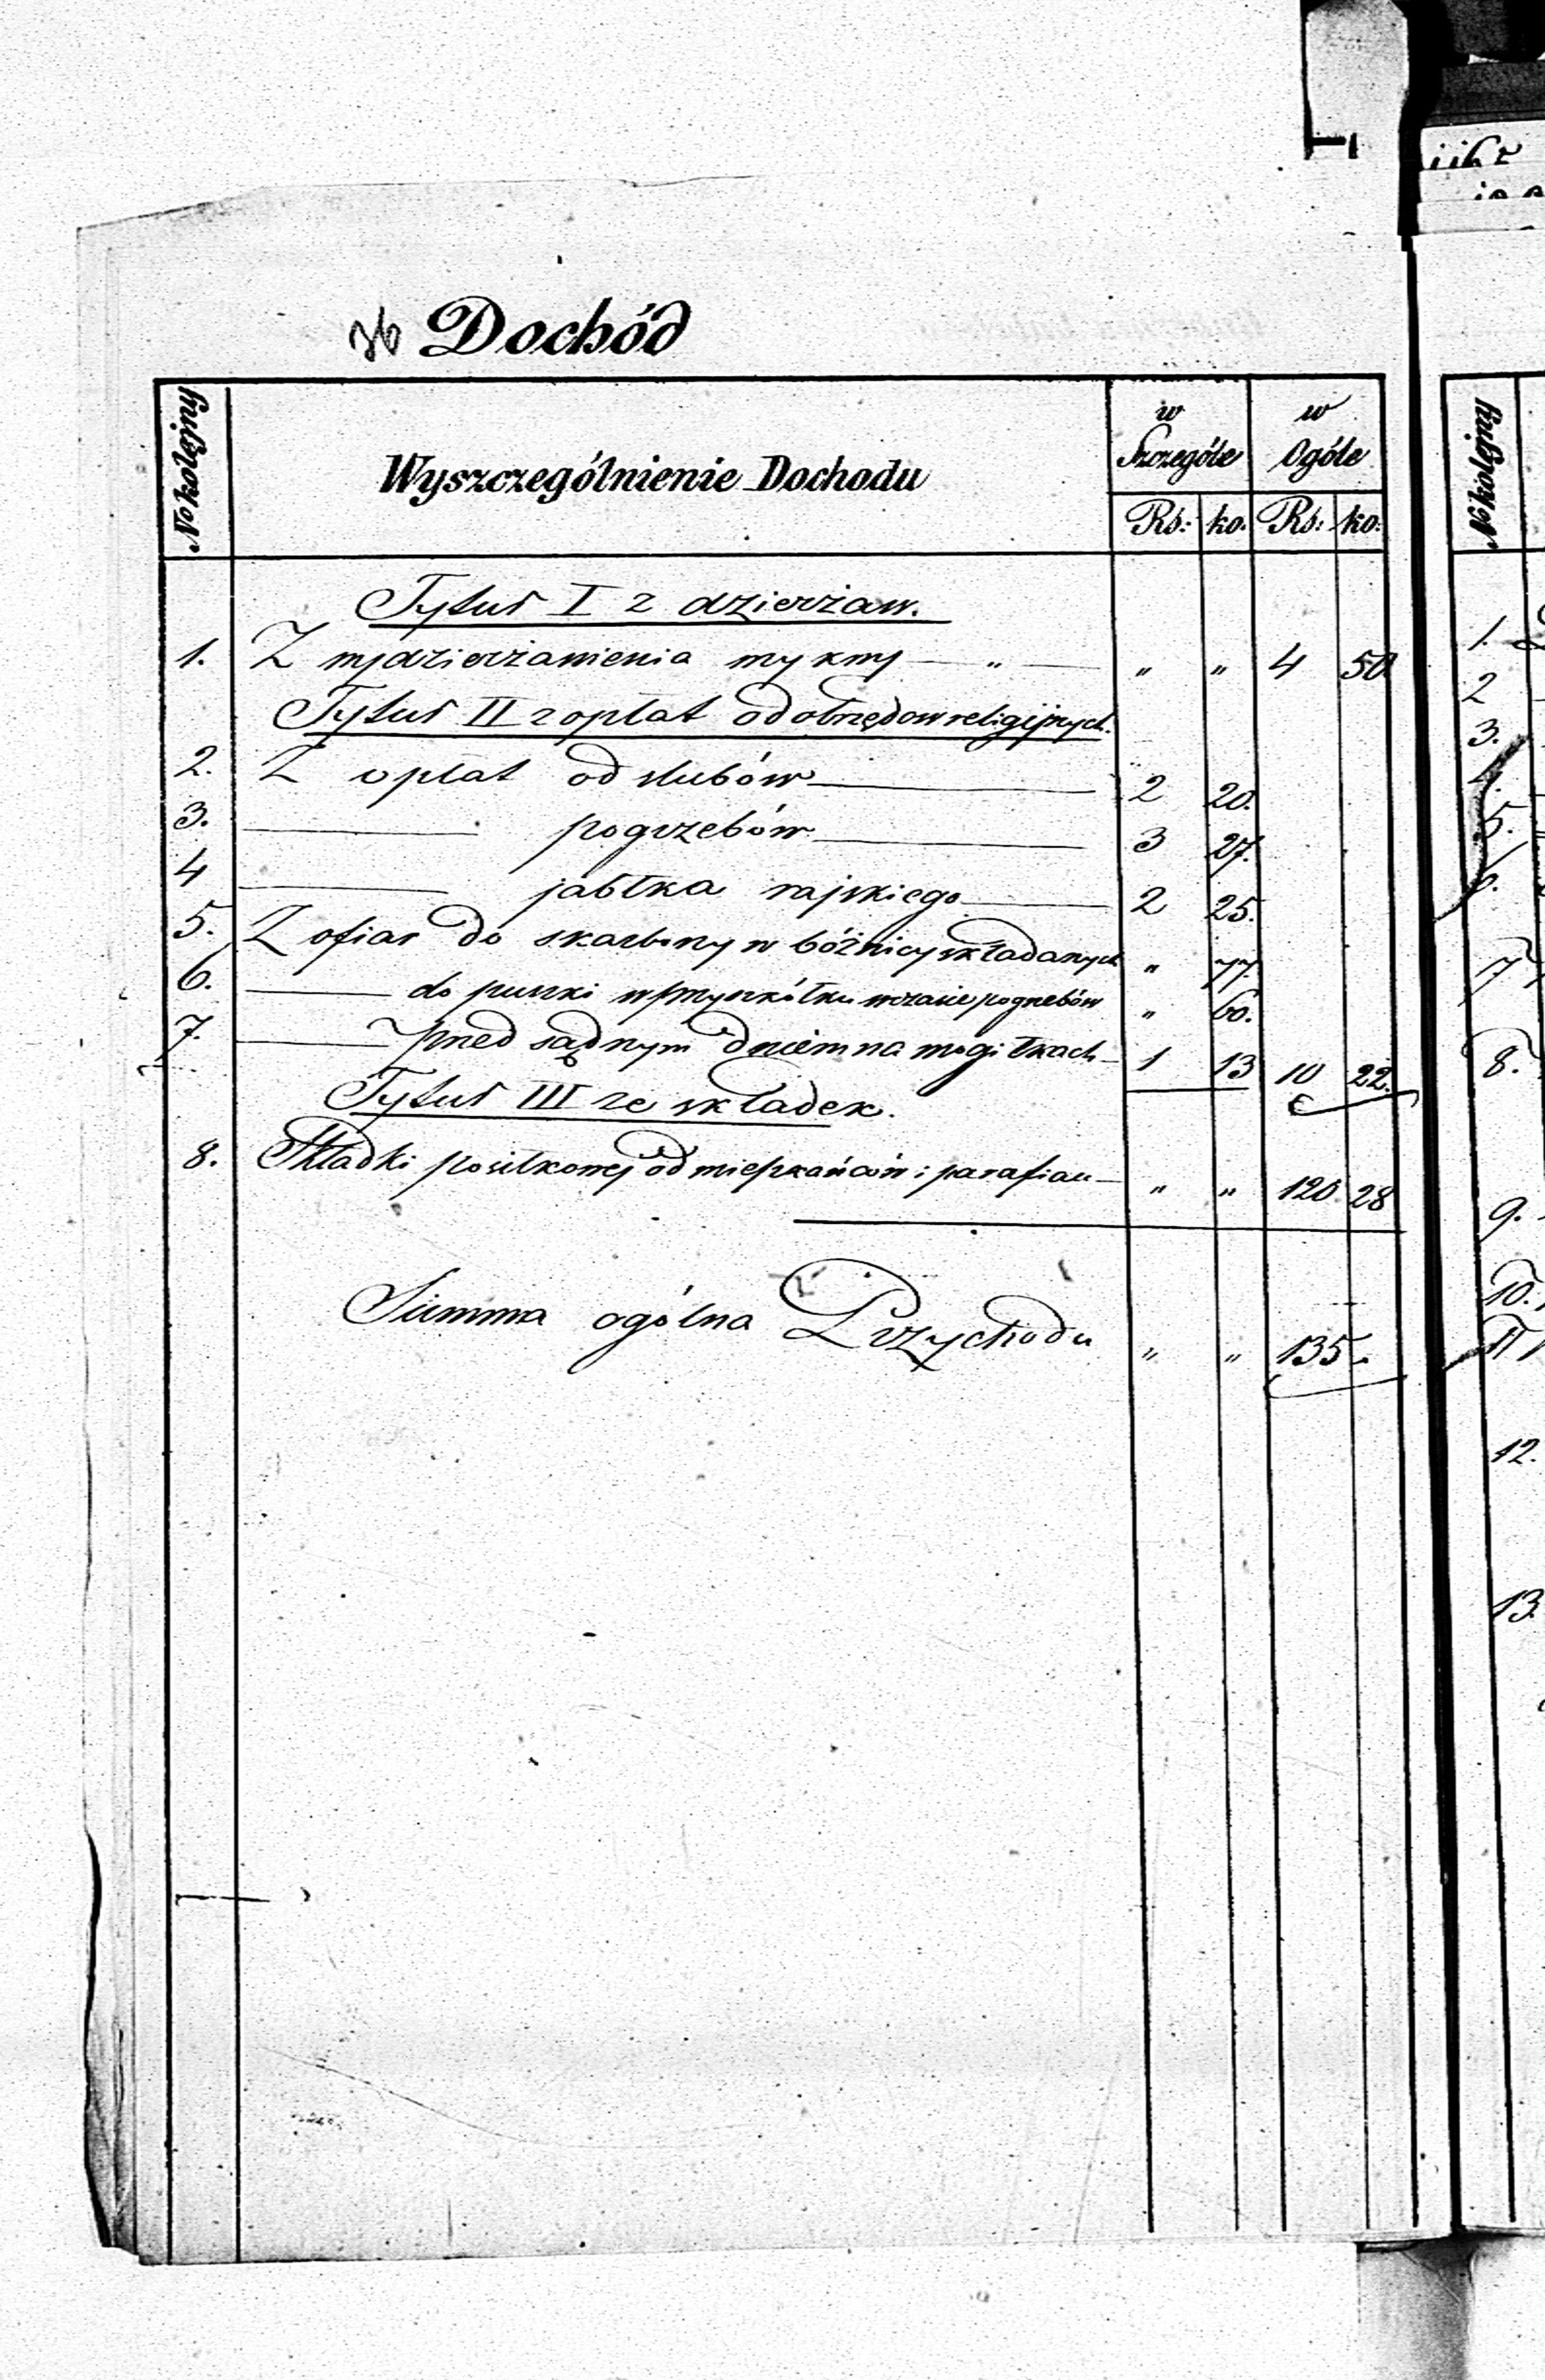 36 Dochód
No kolejny Wyszczególnienie Dochodu w Szczególe w Ogóle
Rs: ko. Rs: ko:
Tytuł I z dzierżaw.
1. Z wydzierżawienia mykwy — „ — „ „ 4 50
Tytuł II z opłat od obrzędow religijnych.
2. Z opłat od slubów 2 20.
3. pogrzebów 3 27.
4 jabłka rajskiego 2 25.
5. Z ofiar do skarbony w bóżnicy składanych „ 77.
6. do puszki w przyszkółku w czasie pogrzebów „ 60.
7. przed sądnym dniem na mogiłkach 1 13 10 22.
Tytuł III ze składek.
8. Składki posiłkowej od mieszkańców i parafian „ „ 120 28
Summa ogólna Przychodu „ „ 135 „
No kolejny
1.
2
3.
4.
5.
6.
7
8.
9.
10.
11
12.
13.